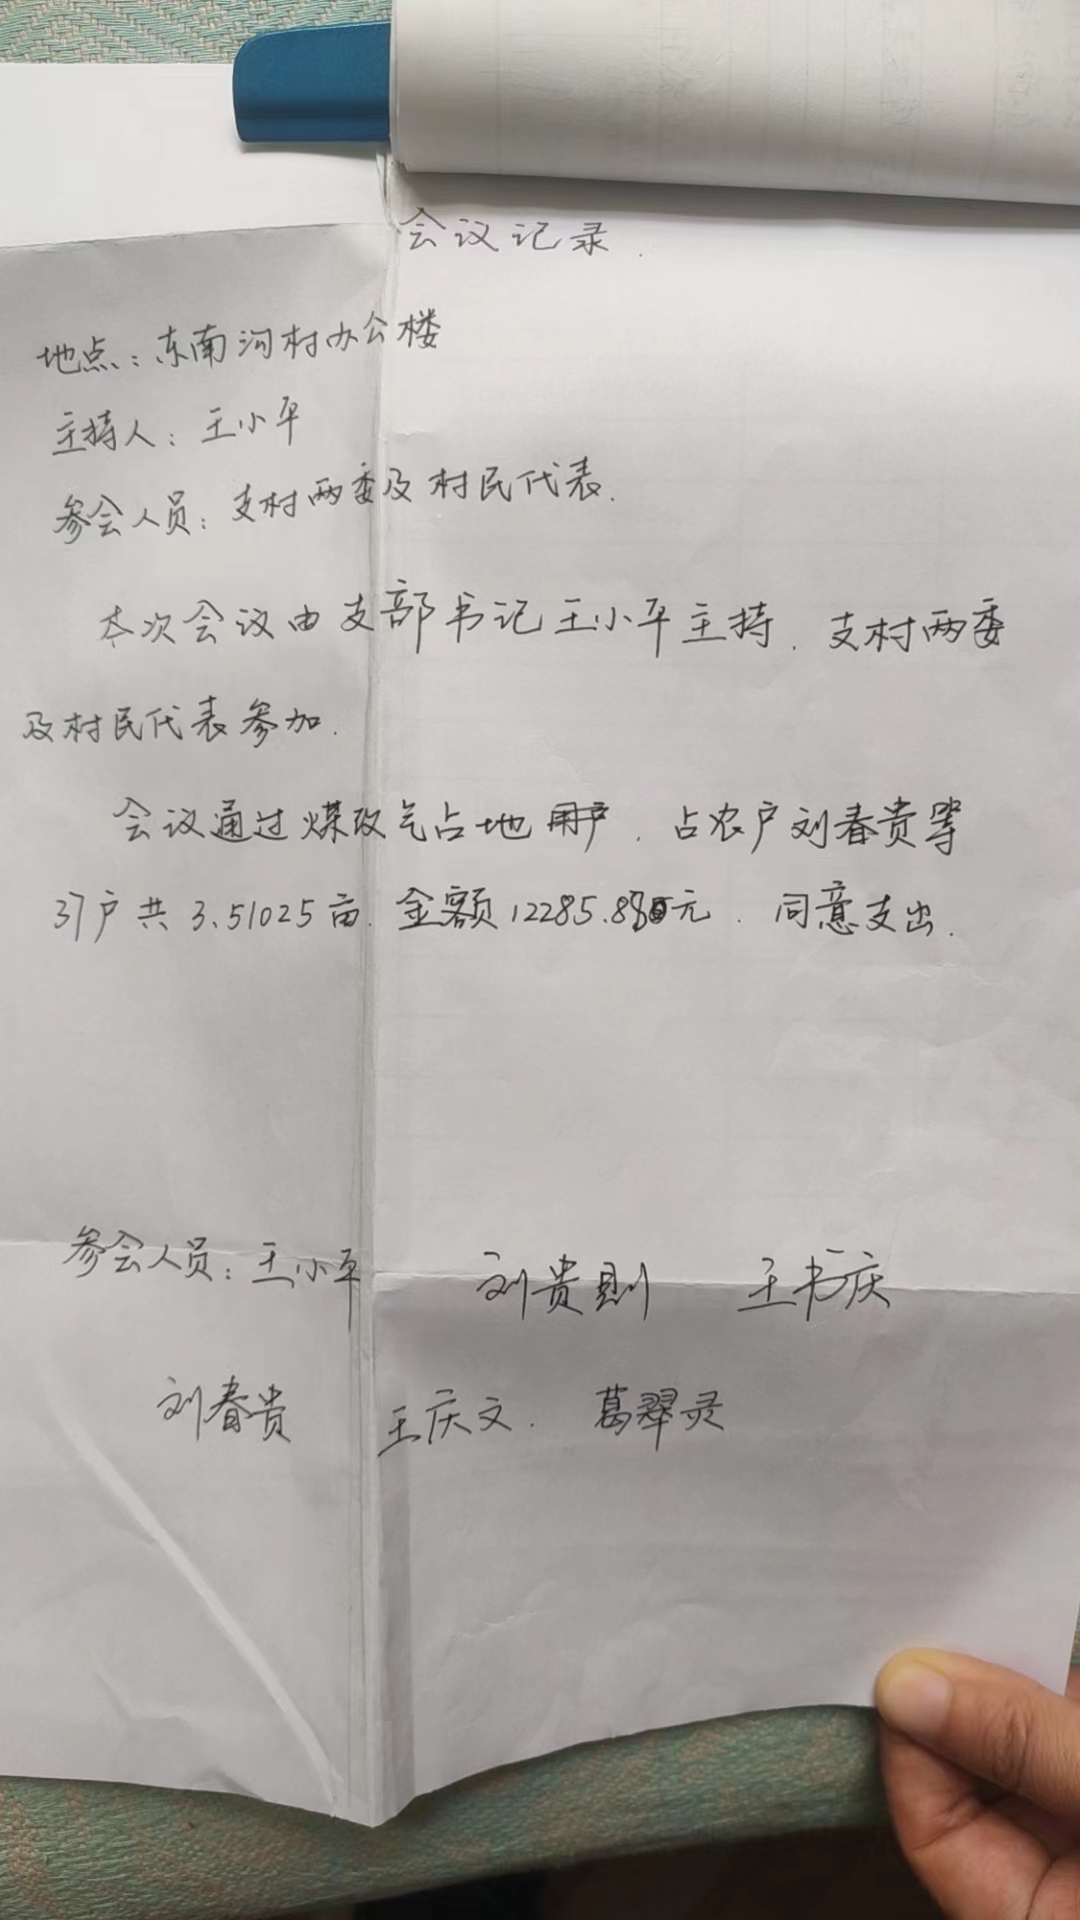 会议记录.
地点:东南沟村办公楼
主持人:王小平
参会人员:支村两委及村民代表.
本次会议由支部书记王小平主持.支村两委
及村民代表参加.
会议通过煤改气占地用户.占农户刘春贵等
37户共3.51025亩.金额12285.88元.同意支出.
参会人员:王小平 刘贵则 王书庆
刘春贵 王庆文. 葛翠灵